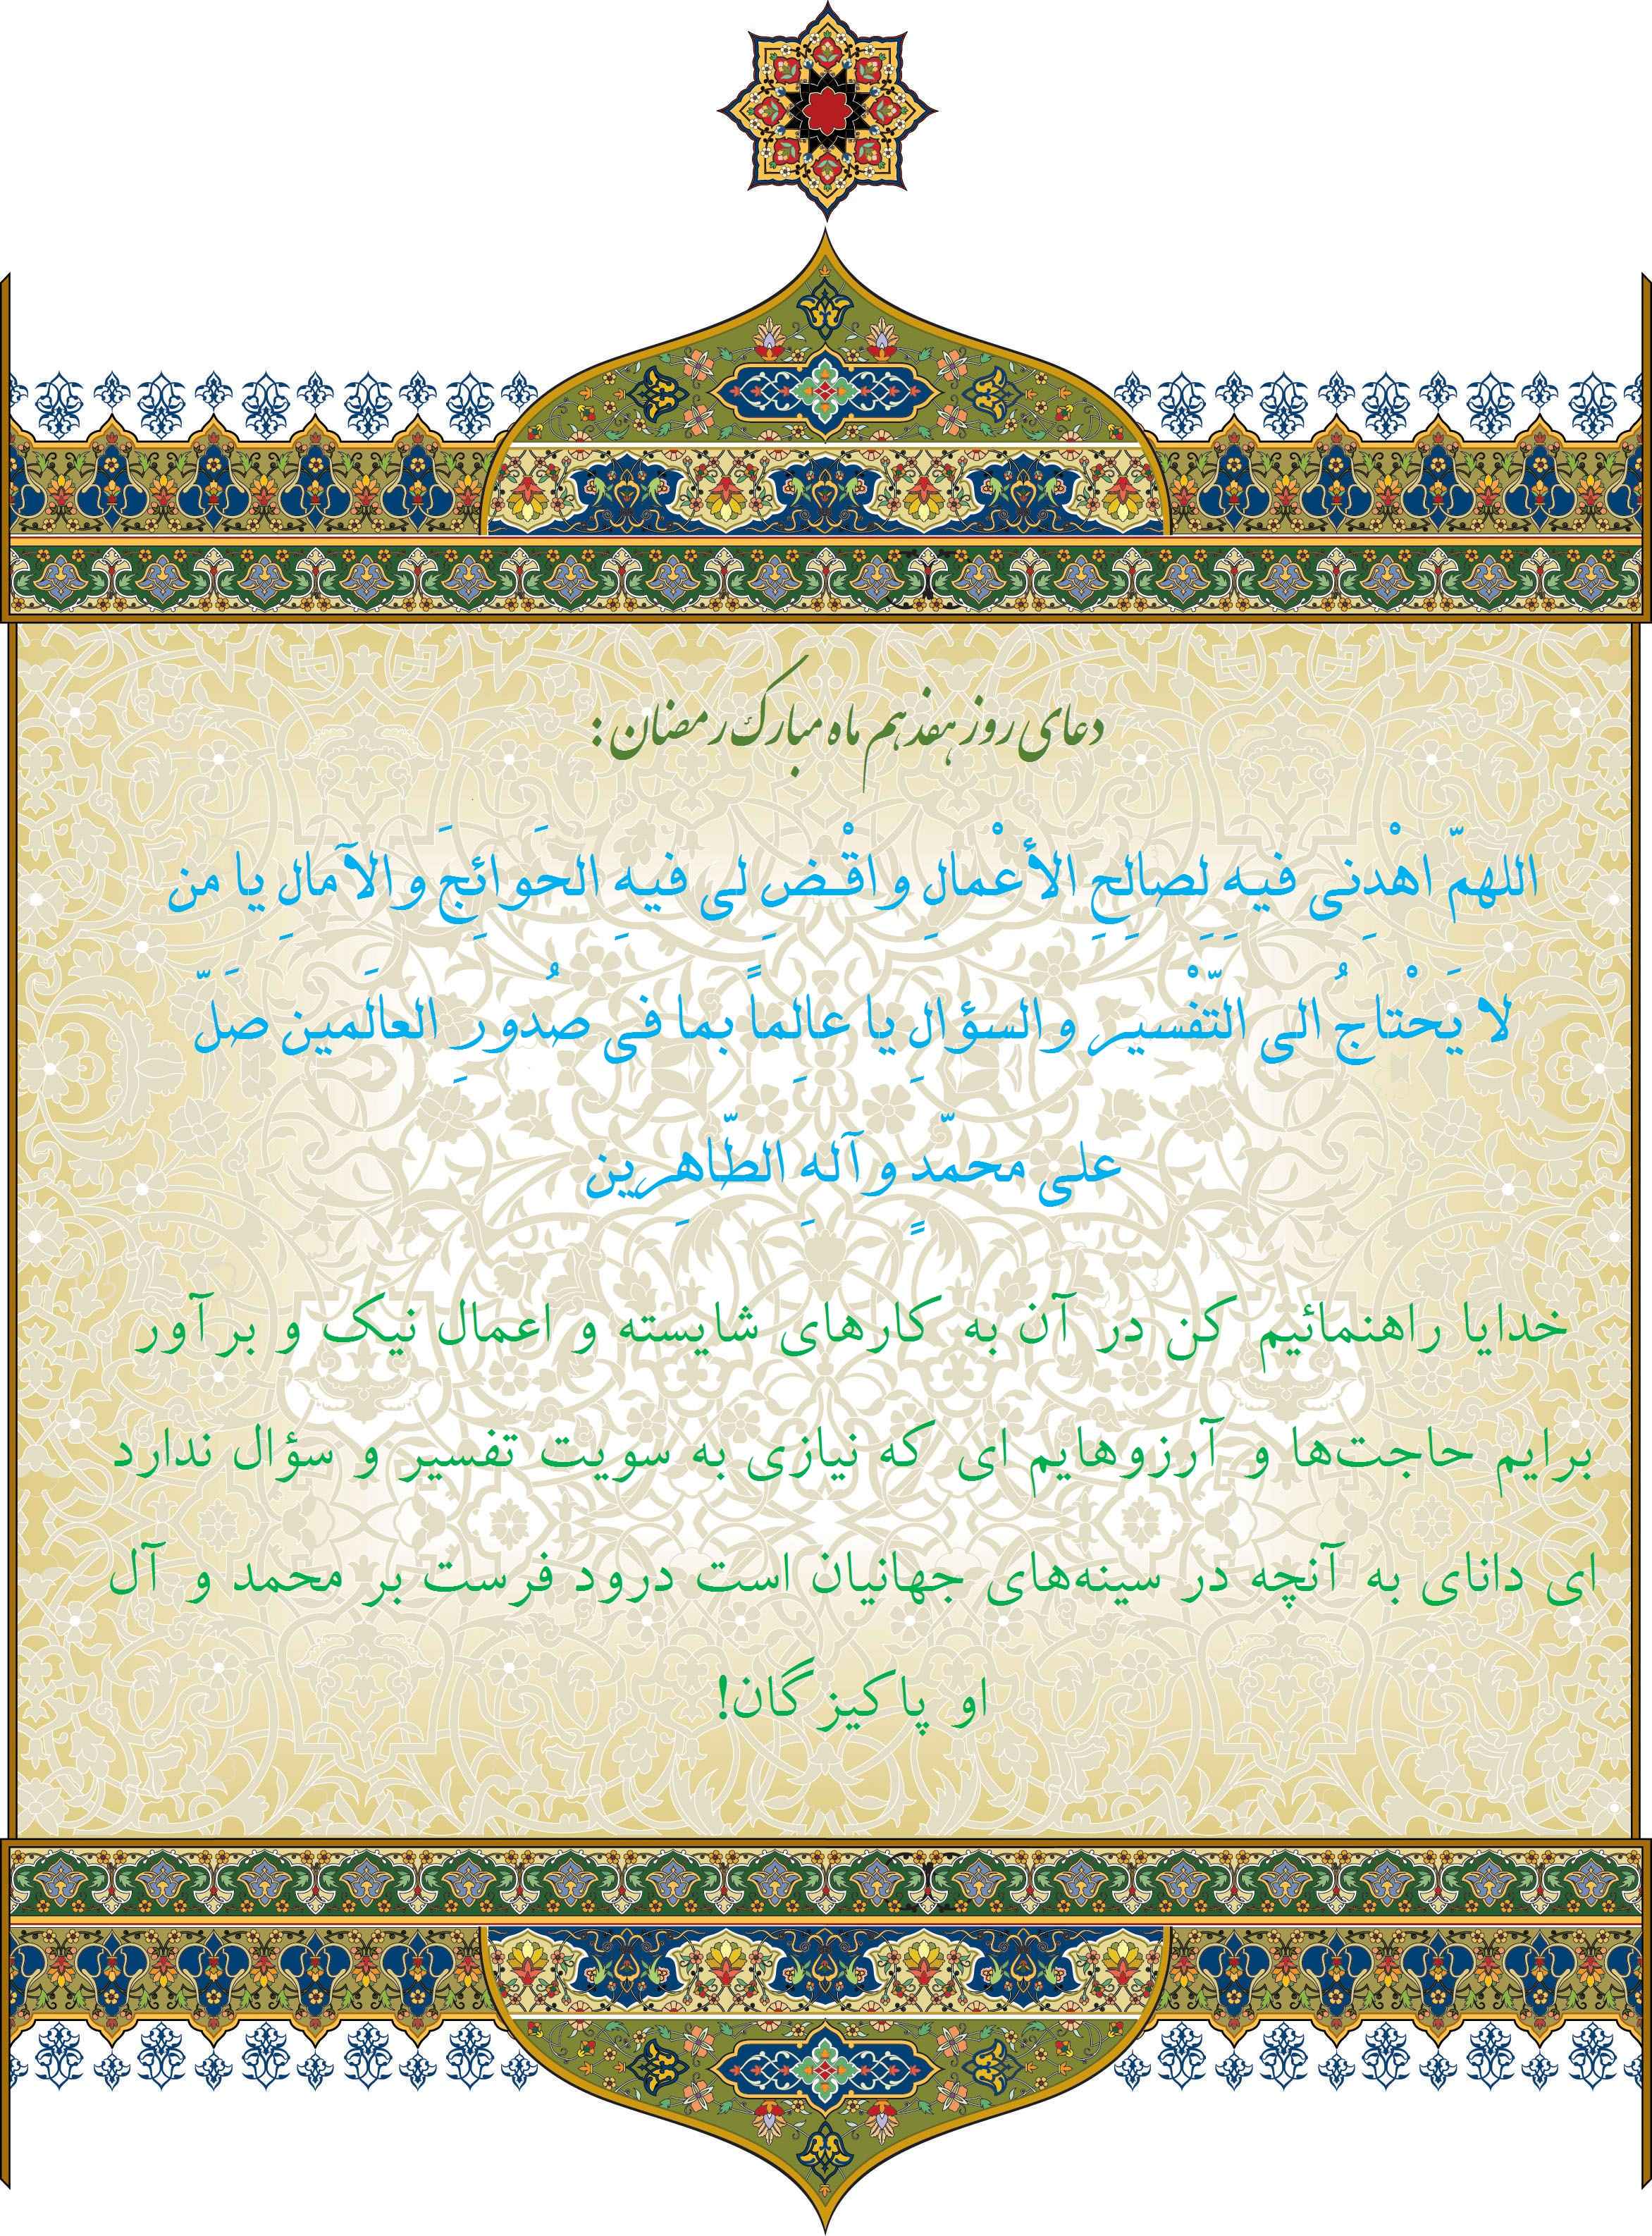 دعای روز هفدهم ماه مبارک رمضان :
اللهمّ اهْدِنی فیهِ لِصالِحِ الأعْمالِ واقْضِ لی فیهِ الحَوائِجَ والآمالِ یا من
لا یَحْتاجُ الی التّفْسیر والسؤالِ یا عالِماً بما فی صُدورِ العالَمین صَلّ
علی محمّدٍ وآلهِ الطّاهِرین
خدایا راهنمائیم کن در آن به کارهای شایسته و اعمال نیک و برآور
برایم حاجت‌ها و آرزوهایم ای که نیازی به سویت تفسیر و سؤال ندارد
ای دانای به آنچه در سینه‌های جهانیان است درود فرست بر محمد و آل
او پاکیزگان!